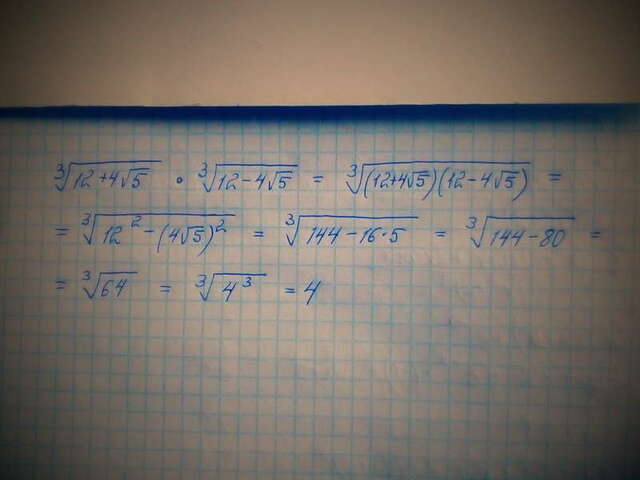 ∛(12+4√5) • ∛(12-4√5) = ∛((12+4√5)(12-4√5)) =
= ∛(12² - (4√5)²) = ∛(144 - 16·5) = ∛(144-80) =
= ∛64 = ∛(4³) = 4